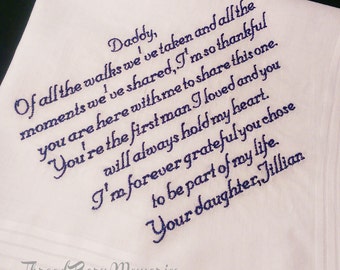 Daddy,
Of all the walks we've taken and all the
moments we've shared, I'm so thankful
you are here with me to share this one.
You're the first man I loved and you
will always hold my heart.
I'm forever grateful you chose
to be part of my life.
Your daughter, Jillian